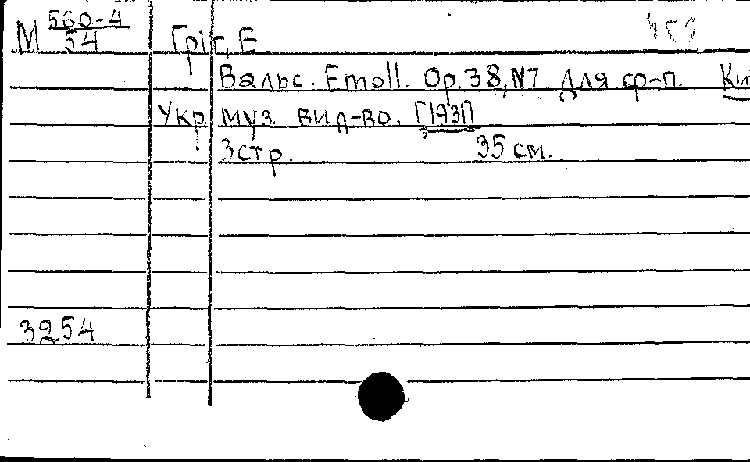 М 560-4/54
Гріг, Е
Вальс. Emoll. Op.38, №7 Для ср-п. Ки
Укр. муз. вид-во, [193
3 стр. 35 см.
3254